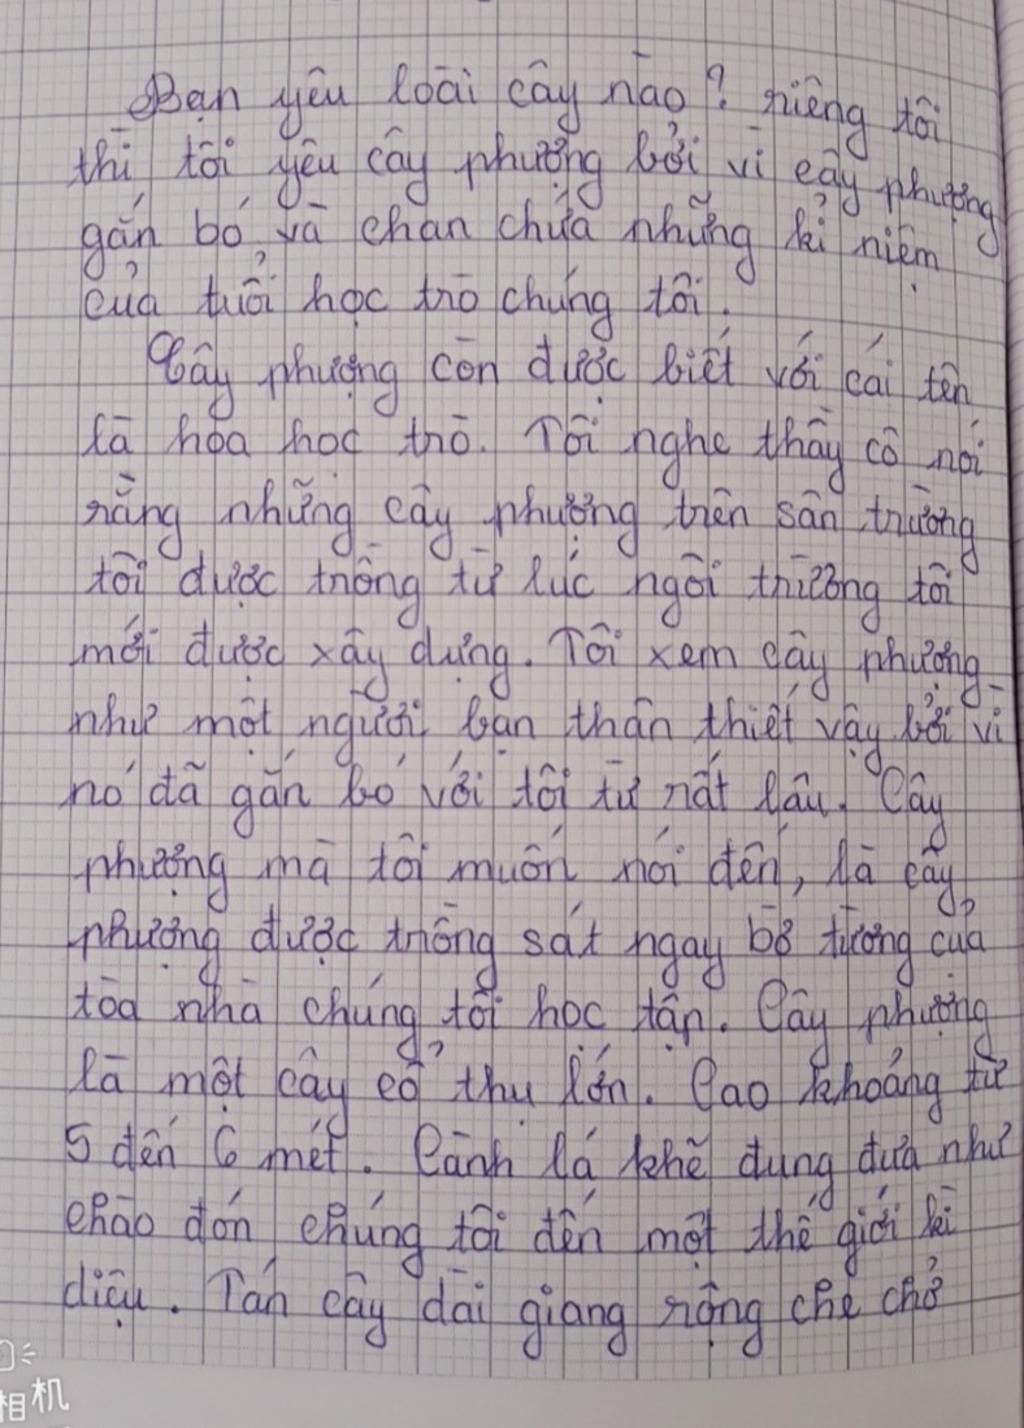 Bạn yêu loài cây nào? riêng tôi
thì tôi yêu cây phượng bởi vì cây phượng
gắn bó và chan chứa những kỉ niệm
của tuổi học trò chúng tôi.
Cây phượng còn được biết với cái tên
là hoa học trò. Tôi nghe thầy cô nói
rằng những cây phượng trên sân trường
tôi được trồng từ lúc ngôi trường tôi
mới được xây dựng. Tôi xem cây phượng
như một người bạn thân thiết vậy bởi vì
nó đã gắn bó với tôi từ rất lâu. Cây
phượng mà tôi muốn nói đến, là cây
phượng được trồng sát ngay bờ tường của
tòa nhà chúng tôi học tập. Cây phượng
là một cây cổ thụ lớn. Cao khoảng từ
5 đến 6 mét. Cành lá khẽ dung đưa như
chào đón chúng tôi đến một thế giới kì
diệu. Tán cây dài giang rộng che chở
相机